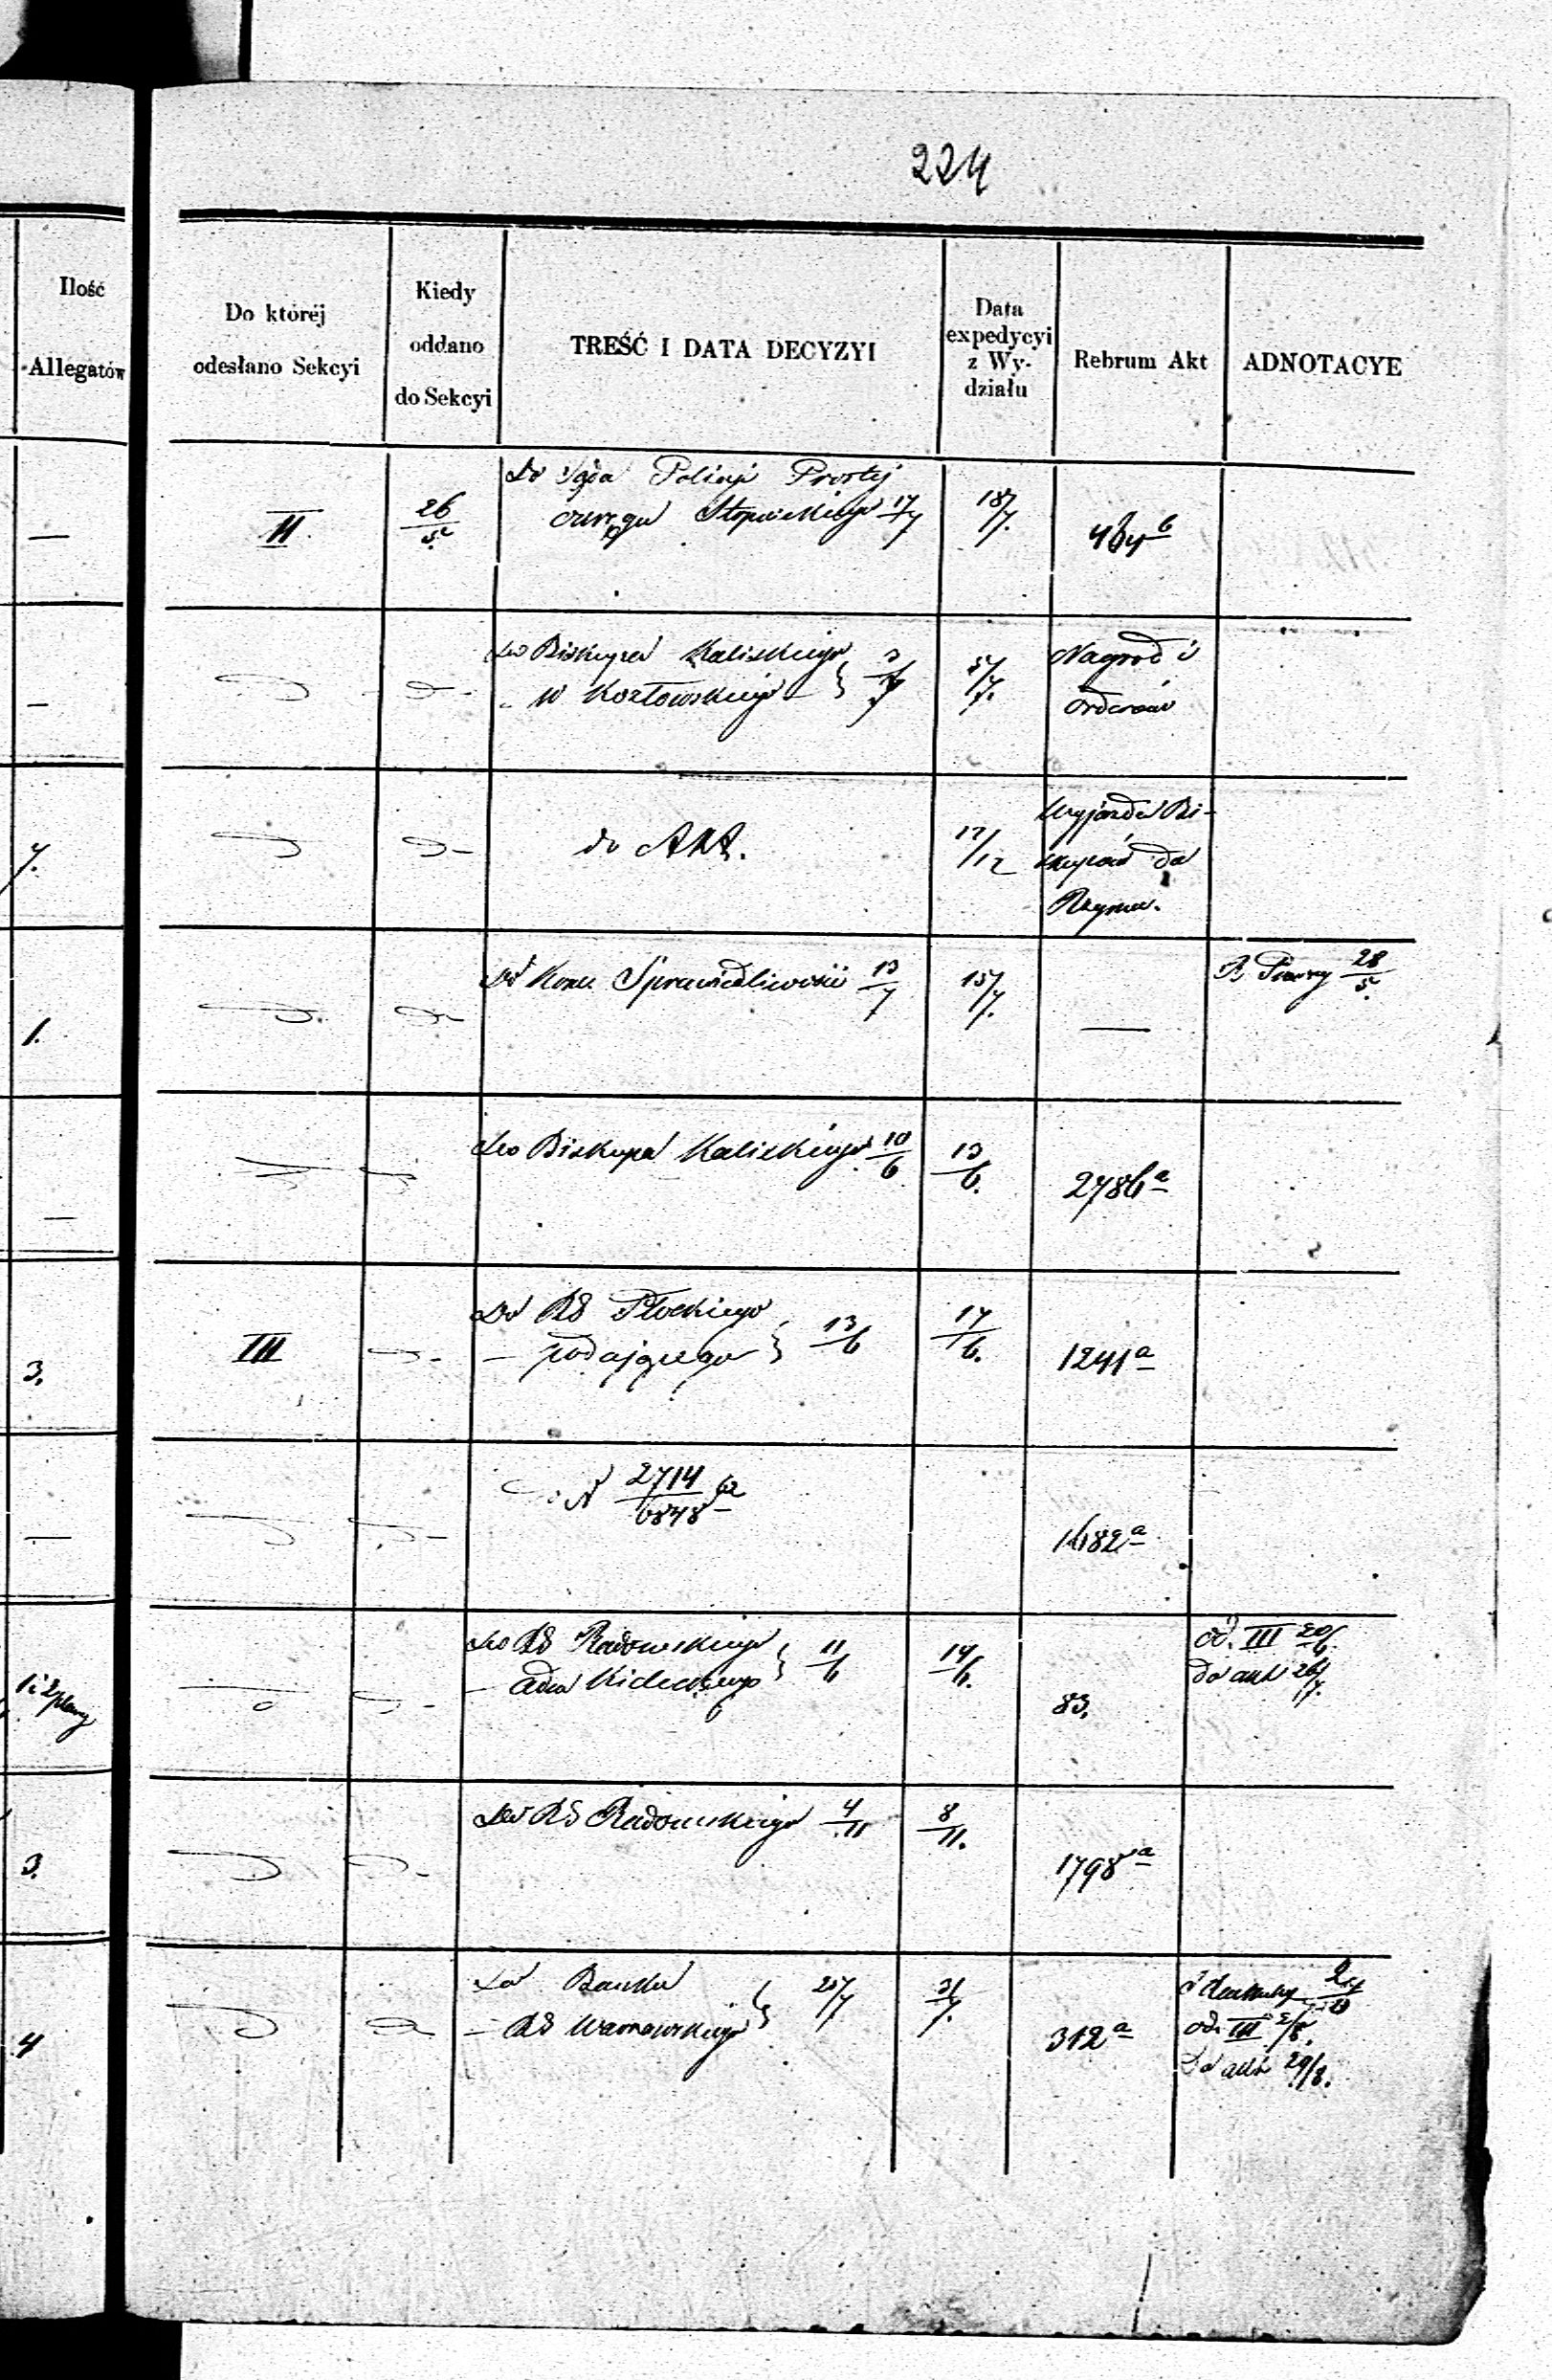 224
Ilość
Allegatów
Do któréj
odesłano Sekcyi
Kiedy
oddano
do Sekcyi
TREŚĆ I DATA DECYZYI
Data
expedycyi
z Wy-
działu
Rebrum Akt
ADNOTACYE
—
II.
26/5
Do Sąda Policyi Prostej
okręgu Stopnickiego 17/7
18/7.
464 b
—
Do Biskupa Kaliskiego
— W Kozłowskiego } 3/7
5/7.
Nagrod i
orderów
7.
do Akt.
12/12
Wyjazdu Bi-
skupów do
Rzymu.
1.
Do Kom Sprawiedliwości 13/7
15/7.
—
28/5.
—
Do Biskupa Kaliskiego 10/6
13/6.
2786 a
3.
III
Do RG Płockiego
— podającego } 13/6
17/6.
1241 a
—
N 2714/6848
1682 a
1 i 2 plany
Do RG Radomskiego
11/6
14/6.
83.
od. III 20/6.
do akt 26/7.
3.
Do RG Radomskiego 4/11
8/11.
1798 a
4
Do Banku
— RG Warszawskiego } 25/7
31/7.
312 a
od. III
Do akt 29/8.